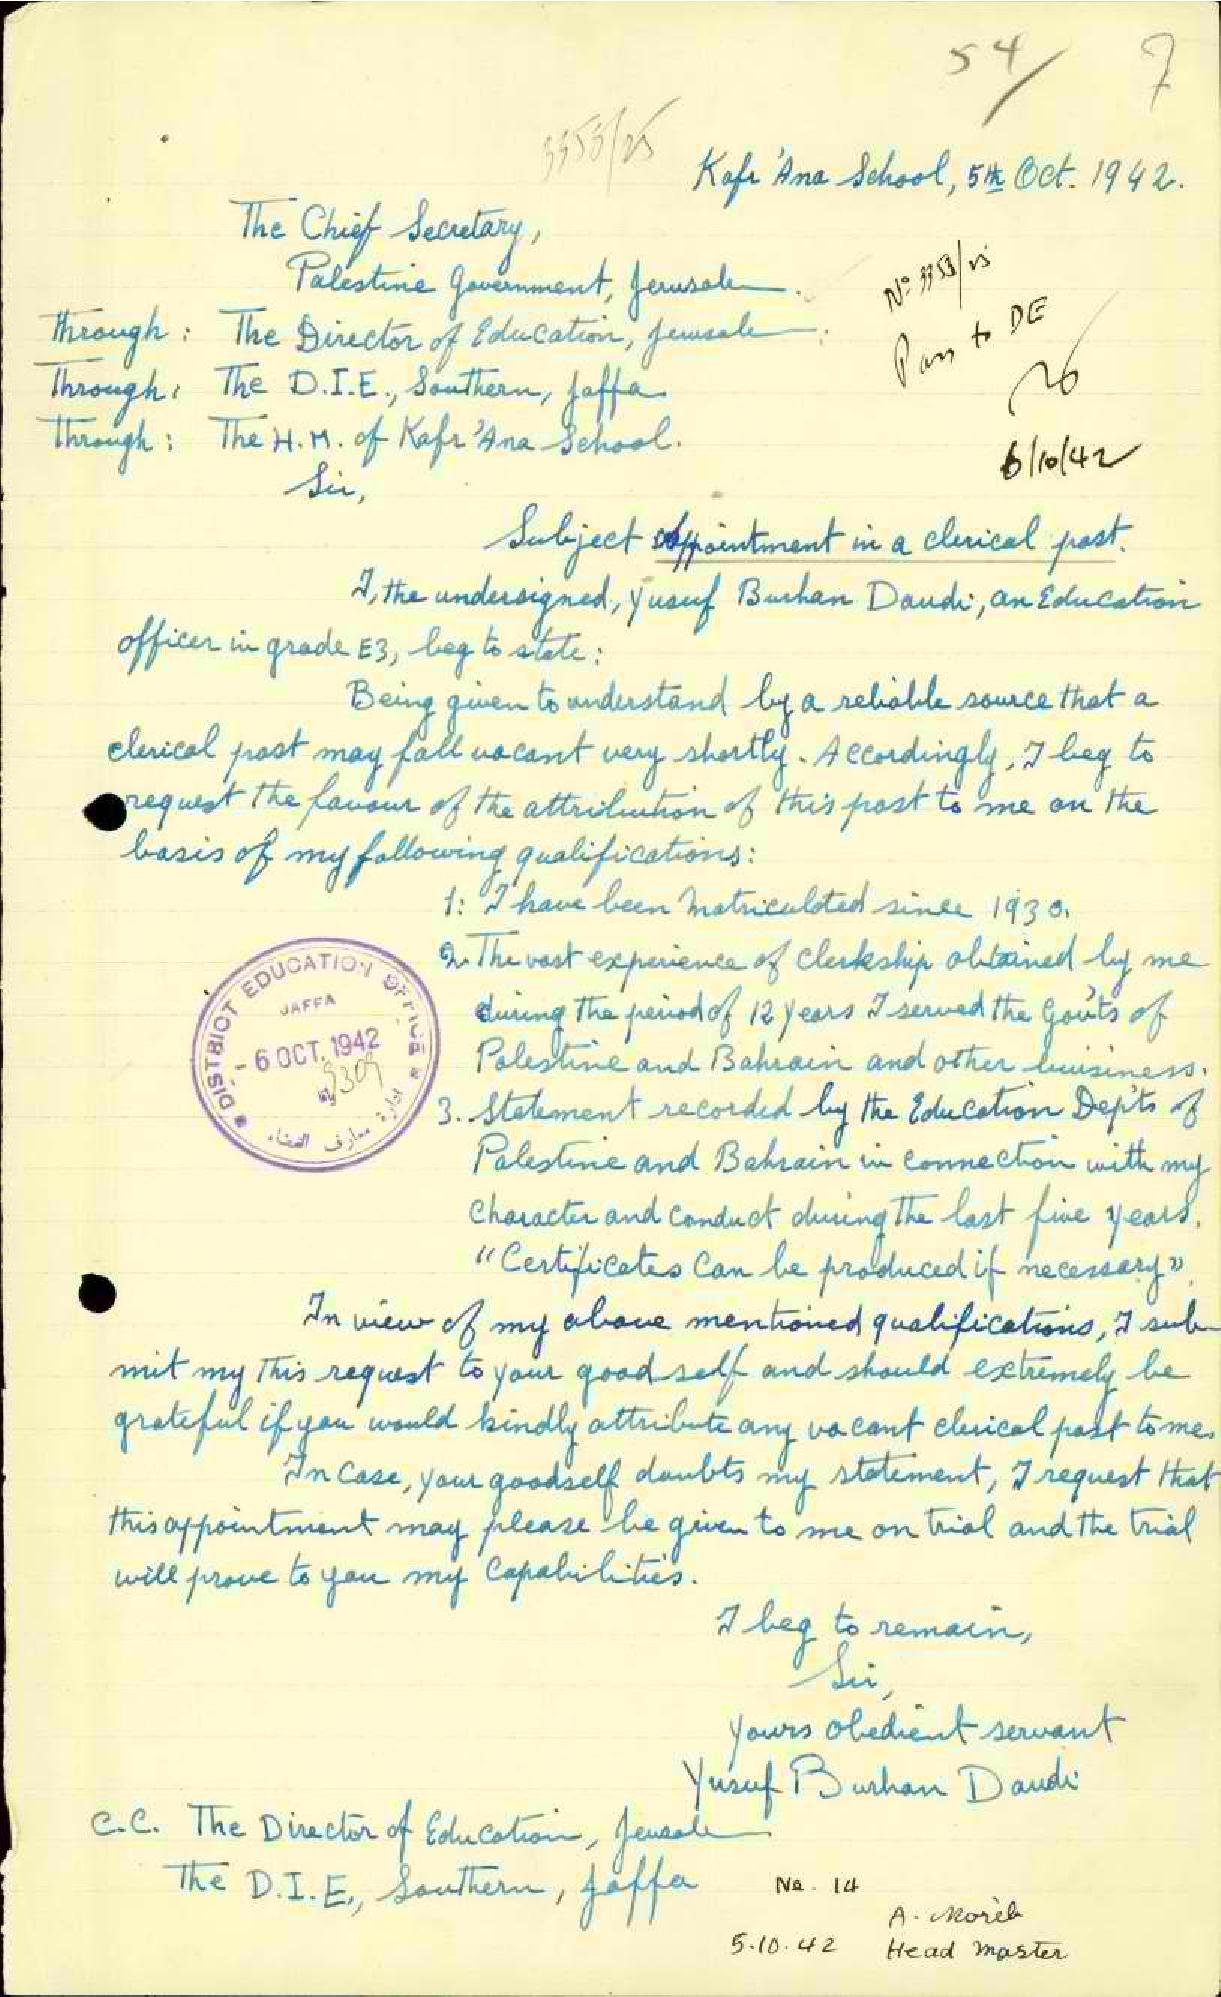 54/ 7
3353/25
Kafr 'Ana School, 5th Oct. 1942.
The Chief Secretary,
Palestine Government, Jerusalem.
Through: The Director of Education, Jerusalem.
Through: The D.I.E., Southern, Jaffa
Through: The H.M. of Kafr 'Ana School.
No 3353/25
Pass to DE
6/10/42
Sir,
Subject appointment in a clerical post.
I, the undersigned, Yusuf Burhan Daudi, an Education
officer in grade E3, beg to state:
Being given to understand by a reliable source that a
clerical post may fall vacant very shortly. Accordingly, I beg to
request the favour of the attribution of this post to me on the
basis of my following qualifications:
1: I have been matriculated since 1930.
2. The vast experience of clerkship obtained by me
during the period of 12 years I served the Gov'ts of
Palestine and Bahrain and other buisiness.
3. Statement recorded by the Education Dep'ts of
Palestine and Bahrain in connection with my
character and conduct during the last five years.
"Certificates can be produced if necessary"
DISTRICT EDUCATION OFFICE
JAFFA
- 6 OCT. 1942
3309
ادارة معارف القضاء
In view of my above mentioned qualifications, I sub-
mit my this request to your good self and should extremely be
grateful if you would kindly attribute any vacant clerical post to me.
In case, your goodself doubts my statement, I request that
this appointment may please be given to me on trial and the trial
will prove to you my capabilities.
I beg to remain,
Sir,
yours obedient servant
Yusuf Burhan Daudi
C.C. The Director of Education, Jerusalem
The D.I.E., Southern, Jaffa
No. 14
A. Moreb
5.10.42 Head Master